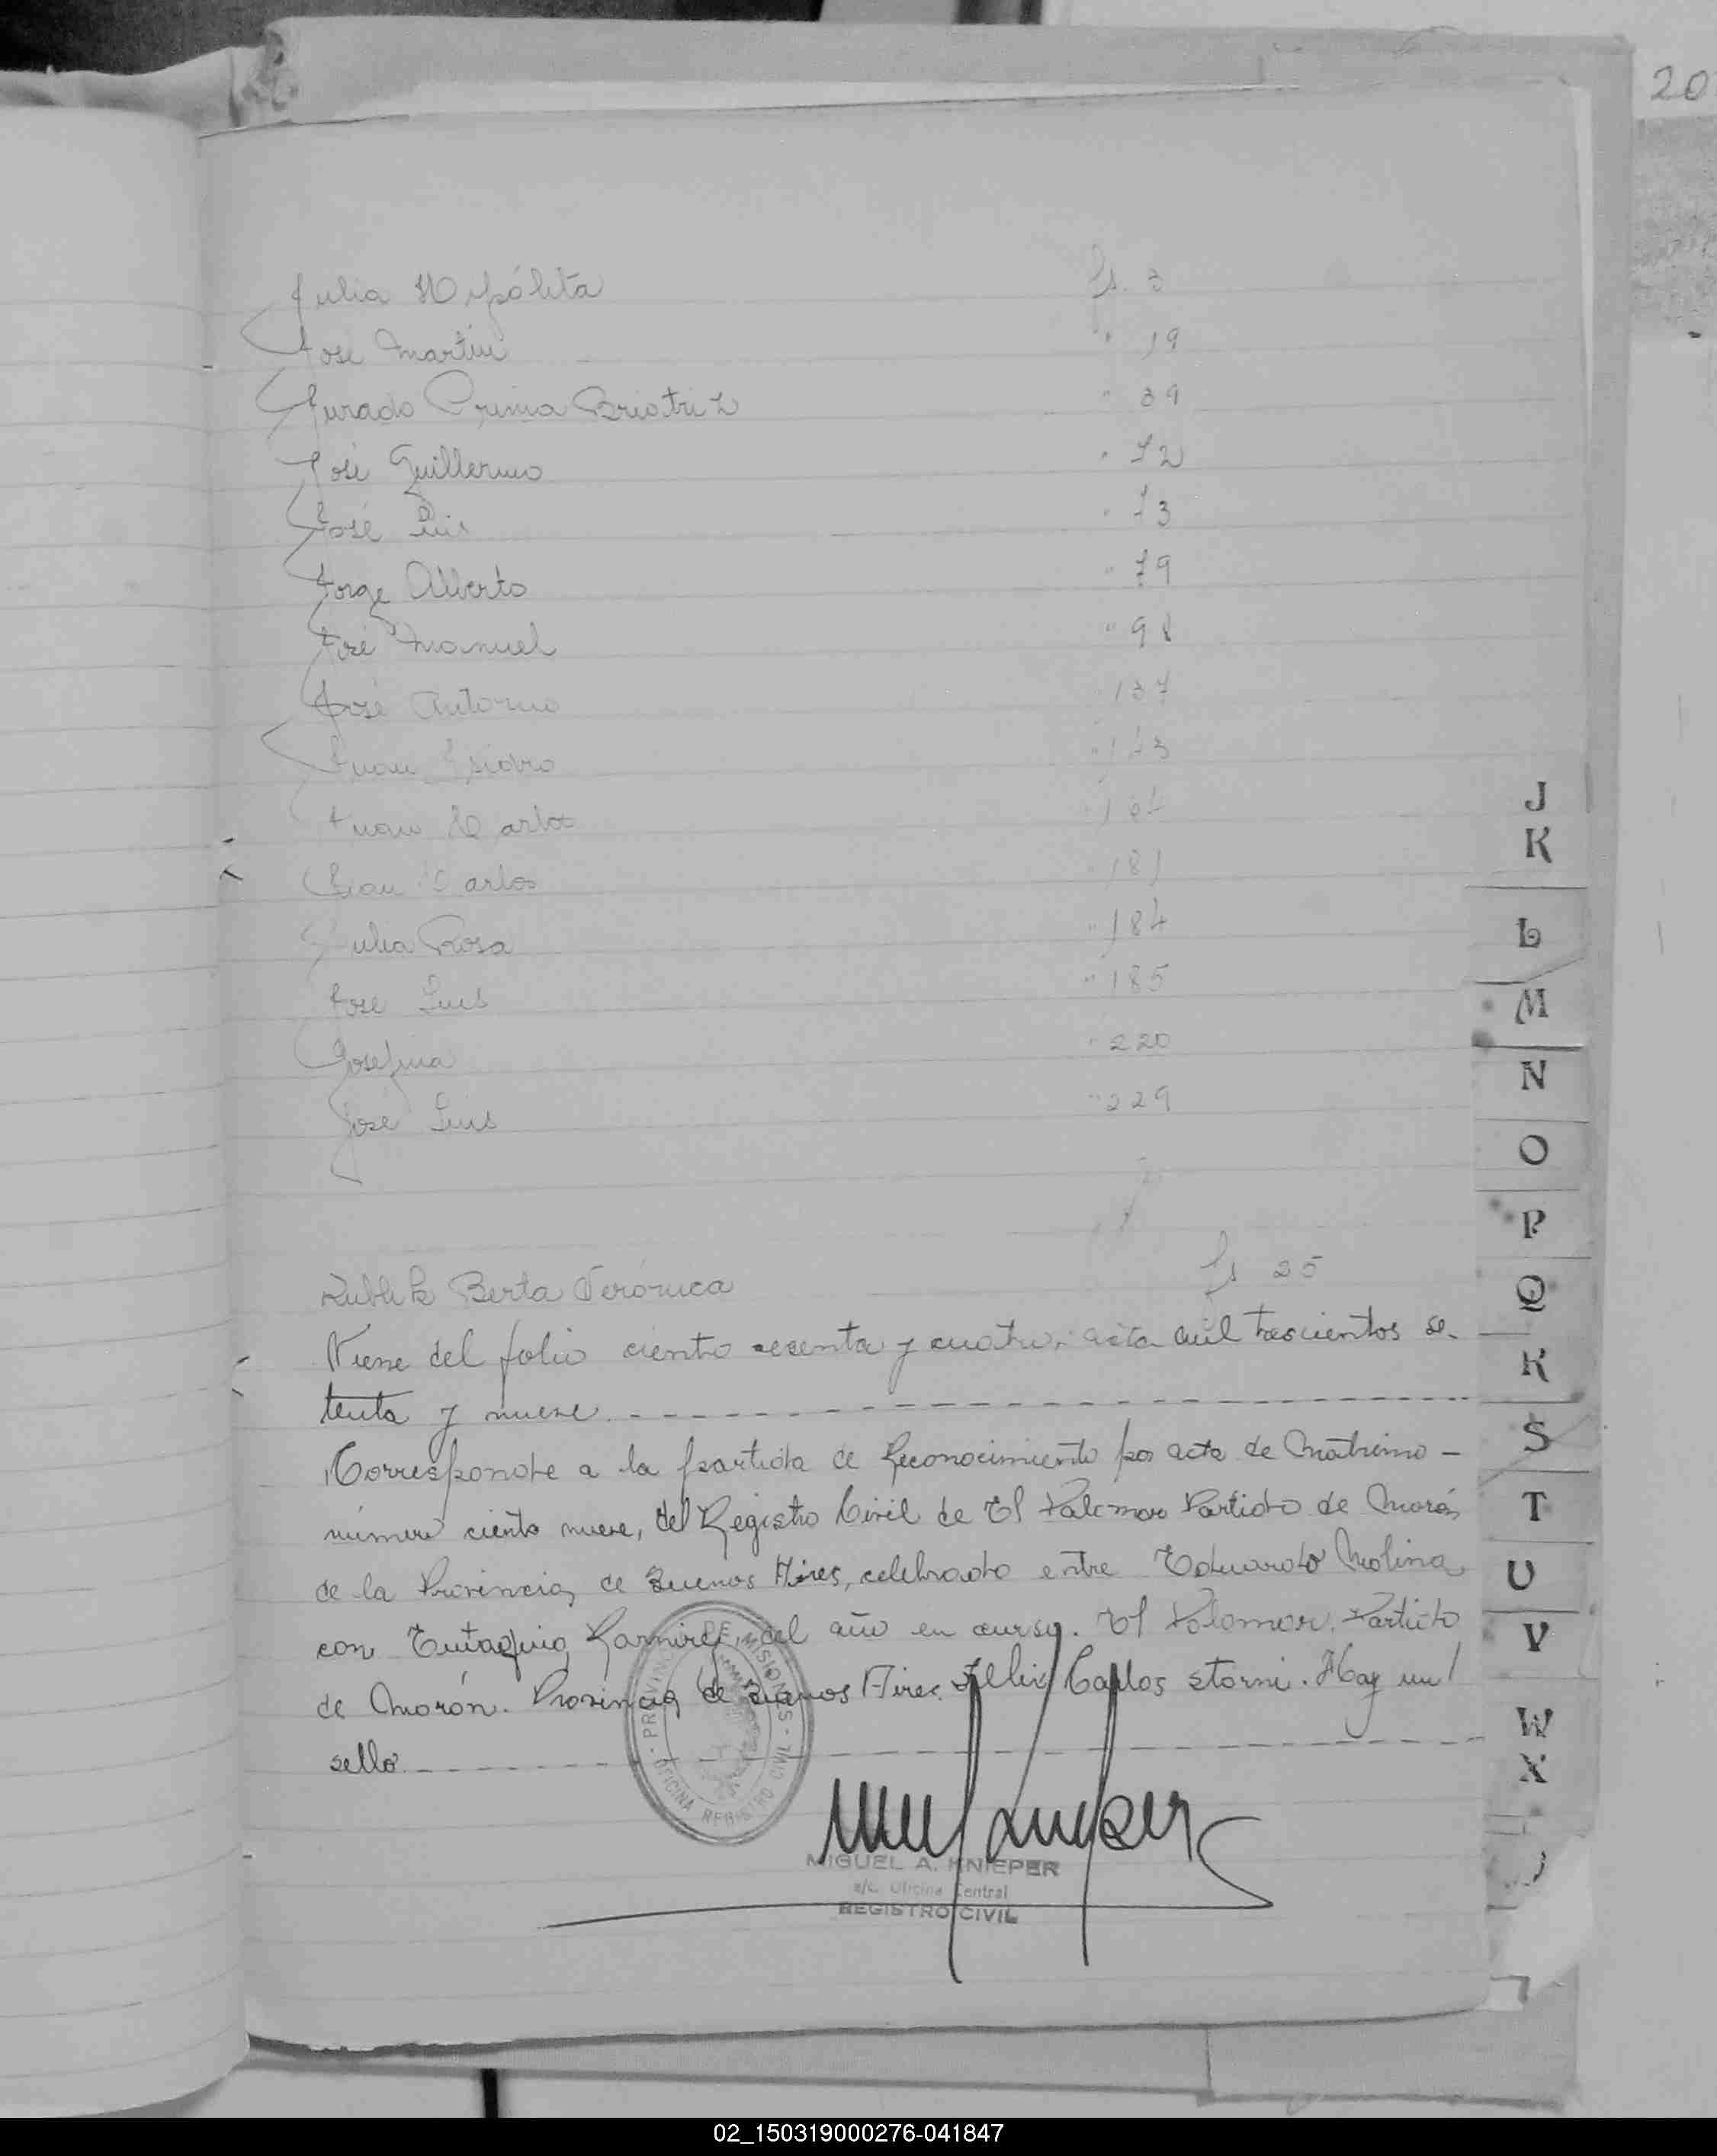 20
Julia Hipólita fs. 3
José Martin " 19
Jurado Prima Beatriz " 39
José Guillermo " 72
José Luis " 73
Jorge Alberto " 79
José Manuel " 98
José Antonio 137
Juan Isidro " 173
Juan Carlos
Juan Carlos " 181
Julia Rosa " 184
José Luis " 185
Josefina " 220
José Luis " 229
Kublik Berta Verónica fs 25
Viene del folio ciento sesenta y cuatro, acta mil trescientos se-
tenta y nueve.
Corresponde a la partida de Reconocimiento por acta de Matrimo-
número ciento nueve, del Registro Civil de El Palomar Partido de Morón
de la Provincia de Buenos Aires, celebrado entre Eduardo Molina
con Eutaquia Ramirez, del año en curso. El Palomar, Partido
de Morón. Provincia de Buenos Aires. Félix Carlos Storni. Hay un
sello.
PROVINCIA DE MISIONES - OFICINA REGISTRO CIVIL -
MIGUEL A. KNIEPER
a/c. Oficina Central
REGISTRO CIVIL
J
K
L
M
N
O
P
Q
R
S
T
U
V
W
X
02_150319000276-041847